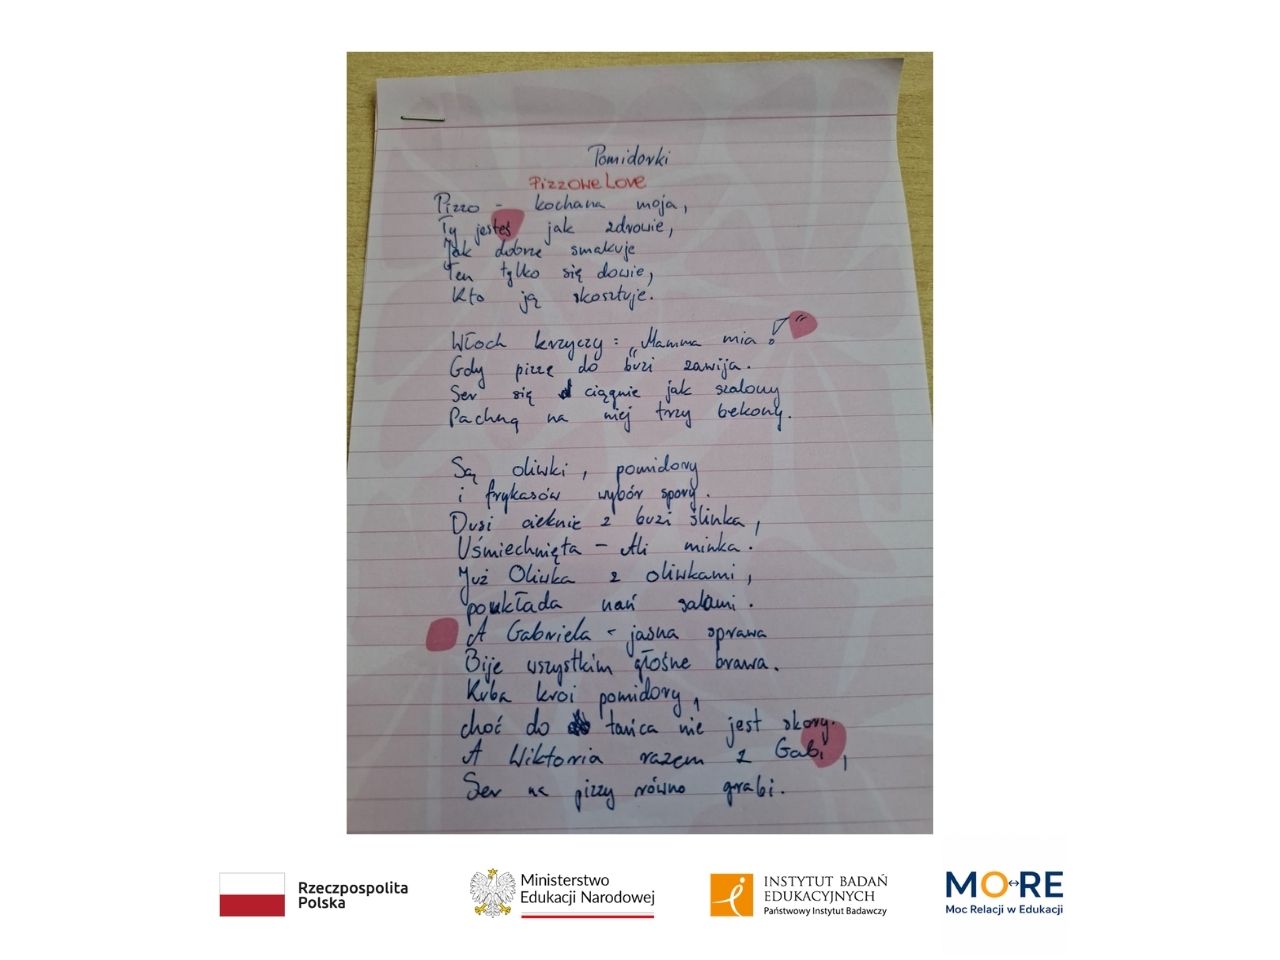 Pomidorki
PizzoweLove
Pizzo - kochana moja,
Ty jesteś jak zdrowie,
Jak dobrze smakuje
Ten tylko się dowie,
Kto ją skosztuje.
Włoch krzyczy: „Mamma mia!”
Gdy pizzę do buzi zawija.
Ser się ciągnie jak szalony
Pachną na niej trzy bekony.
Są oliwki, pomidory
i frykasów wybór spory.
Dusi cieknie z buzi ślinka,
Uśmiechnięta - Ali minka.
Już Oliwka z oliwkami,
poukłada nań salami.
A Gabriela - jasna sprawa
Bije wszystkim głośne brawa.
Kuba kroi pomidory,
choć do tańca nie jest skory.
A Wiktoria razem z Gabi,
Ser na pizzy równo grabi.
Rzeczpospolita
Polska
Ministerstwo
Edukacji Narodowej
INSTYTUT BADAŃ
EDUKACYJNYCH
Państwowy Instytut Badawczy
MO↔RE
Moc Relacji w Edukacji